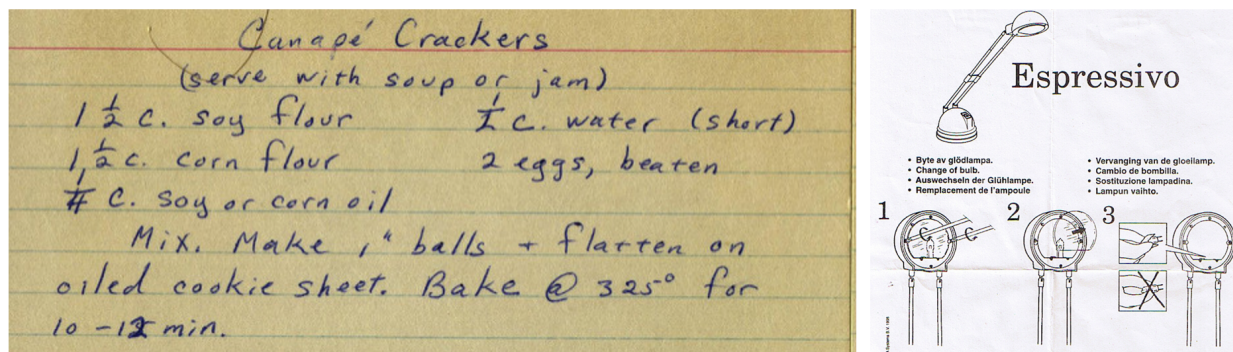 Canapé Crackers
(serve with soup or jam)
1 1/2 c. soy flour
c. water (short)
1 1/2 c. corn flour
2 eggs, beaten
1/4 c. soy or corn oil
Mix. Make 1" balls + flatten on
oiled cookie sheet. Bake @ 325° for
10-12 min.
Espressivo
• Byte av glödlampa.
• Change of bulb.
• Auswechseln der Glühlampe.
• Remplacement de l'ampoule
• Vervanging van de gloeilamp.
• Cambio de bombilla.
• Sostituzione lampadina.
• Lampun vaihto.
1
2
3